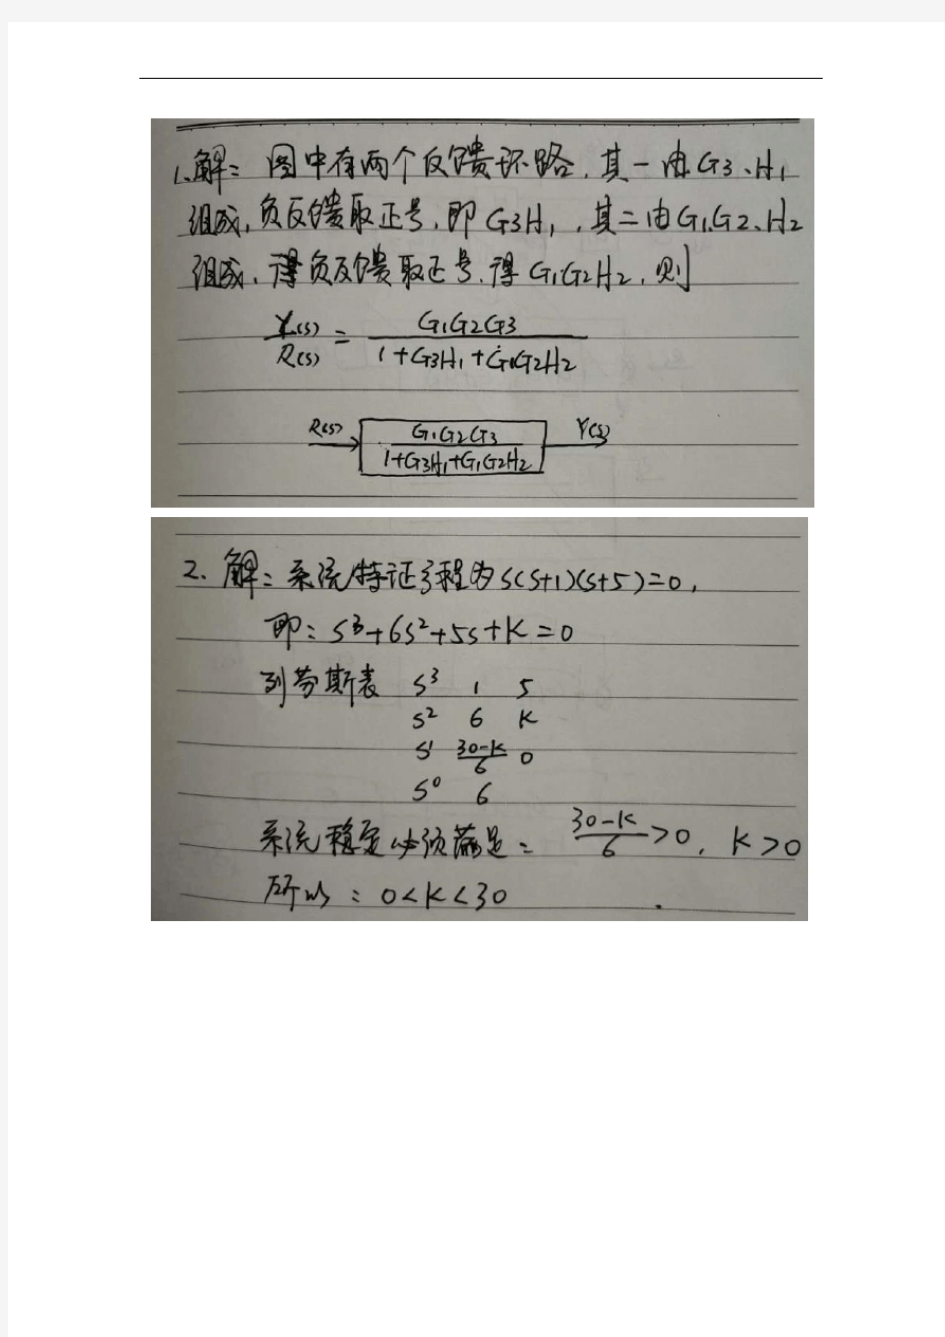 1.解：图中有两个反馈环路，其一由G3、H1
组成，负反馈取正号，即G3H1，其二由G1、G2、H2
组成，得负反馈取正号，得G1G2H2，则
Y(s)/R(s) = G1G2G3/(1+G3H1+G1G2H2)
R(s) G1G2G3/(1+G3H1+G1G2H2) Y(s)
2. 解：系统特征方程为S(S+1)(S+5)=0，
即：S³+6S²+5S+K=0
列劳斯表 S³ 1 5
S² 6 K
S¹ (30-K)/6 0
S⁰ 6
系统稳定必须满足： (30-K)/6>0，K>0
所以：0<K<30